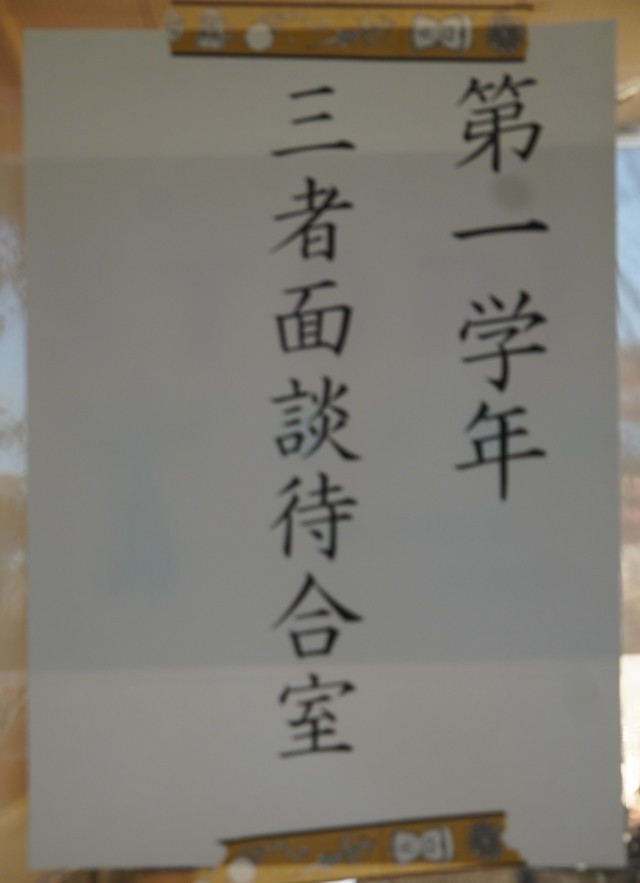 第一学年
三者面談待合室